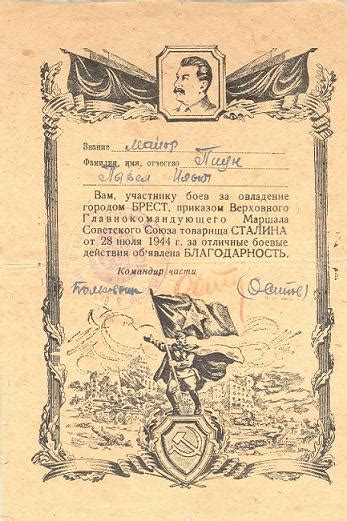 Звание майор
Фамилия, имя, отчество
Павел
Вам, участнику боев за овладение
городом БРЕСТ, приказом Верховного
Главнокомандующего Маршала
Советского Союза товарища СТАЛИНА
от 28 июля 1944 г. за отличные боевые
действия об'явлена БЛАГОДАРНОСТЬ.
Командир части
(Осипов)